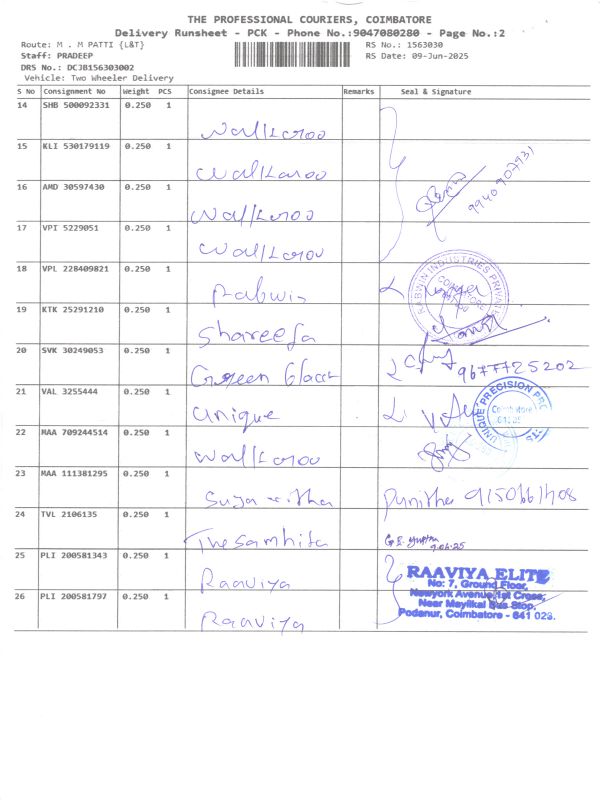 THE PROFESSIONAL COURIERS, COIMBATORE
Delivery Runsheet - PCK - Phone No.:9047080280 - Page No.:2
Route: M . M PATTI {L&T}
RS No.: 1563030
Staff: PRADEEP
RS Date: 09-Jun-2025
DRS No.: DCJB156303002
Vehicle: Two Wheeler Delivery
S No Consignment No Weight PCS Consignee Details Remarks Seal & Signature
14 SHB 500092331 0.250 1
Wallkaroo
15 KLI 530179119 0.250 1
Wallkaroo
9940907931
16 AMD 30597430 0.250 1
Wallkaroo
17 VPI 5229051 0.250 1
Wallkaroo
18 VPL 228409821 0.250 1
Rabwin
RABWIN INDUSTRIES PRIVATE
COIMBATORE
19 KTK 25291210 0.250 1
Shareefa
20 SVK 30249053 0.250 1
Green
9677725202
21 VAL 3255444 0.250 1
Unique
UNIQUE PRECISION
Coimbatore
22 MAA 709244514 0.250 1
Wallkaroo
23 MAA 111381295 0.250 1
Punitha
24 TVL 2106135 0.250 1
The Samhita
9.06.25
25 PLI 200581343 0.250 1
Raaviya
RAAVIYA ELITE
No: 7, Ground Floor,
Newyork Avenue, 1st Cross,
Near Mayilkal Bus Stop,
Podanur, Coimbatore - 641 023.
26 PLI 200581797 0.250 1
Raaviya